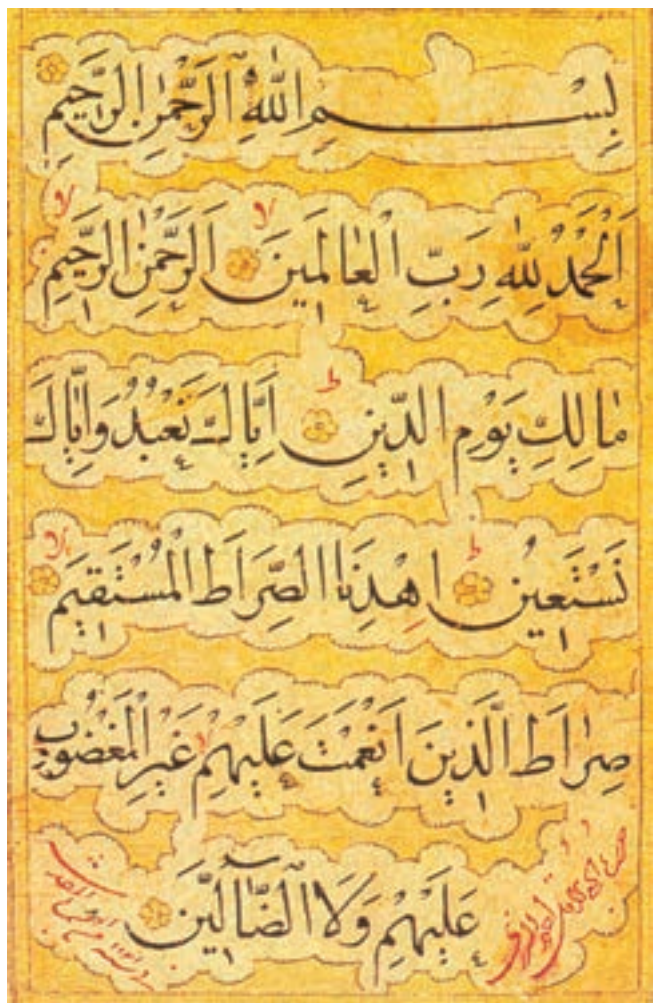 بِسْمِ اللّٰهِ الرَّحْمٰنِ الرَّحِيمِ
اَلْحَمْدُ لِلّٰهِ رَبِّ الْعَالَمِينَ الرَّحْمٰنِ الرَّحِيمِ
مَالِكِ يَوْمِ الدِّينِ اِيَّاكَ نَعْبُدُ وَاِيَّاكَ
نَسْتَعِينُ اِهْدِنَا الصِّرَاطَ الْمُسْتَقِيمَ
صِرَاطَ الَّذِينَ اَنْعَمْتَ عَلَيْهِمْ غَيْرِ الْمَغْضُوبِ
عَلَيْهِمْ وَلَا الضَّآلِّينَ